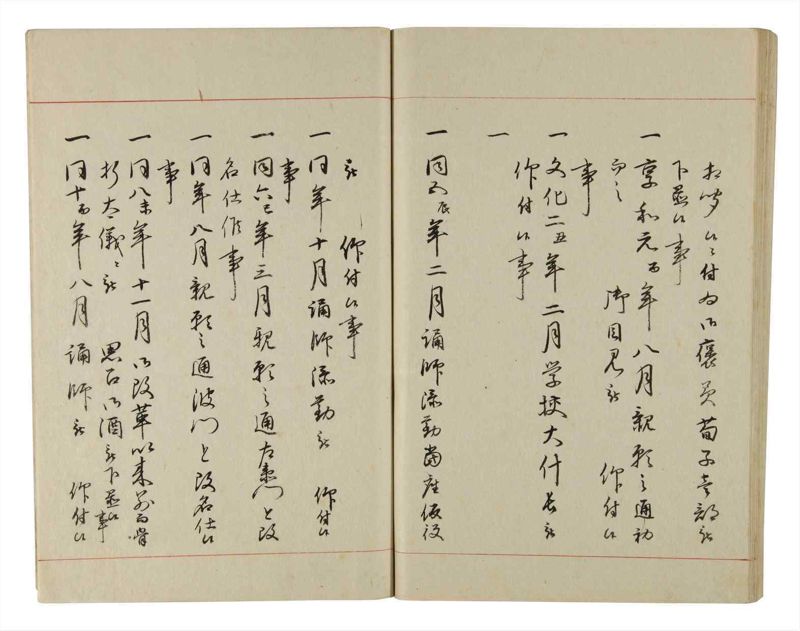 下置候事
一 享和元酉年八月親願之通初
而之 御目見被 仰付候
事
一 文化二丑年二月学校大什長被
仰付候事
一
一 同五辰年二月誦師添勤当座仮役
被 仰付候事
一 同年十月誦師添勤被 仰付候
事
一 同六巳年三月親願之通左衛門と改
名仕候事
一 同年八月親願之通波門と改名仕候
事
一 同八未年十一月御改革以来
太儀 思召御酒被下置候事
一 同十酉年八月誦師被 仰付候